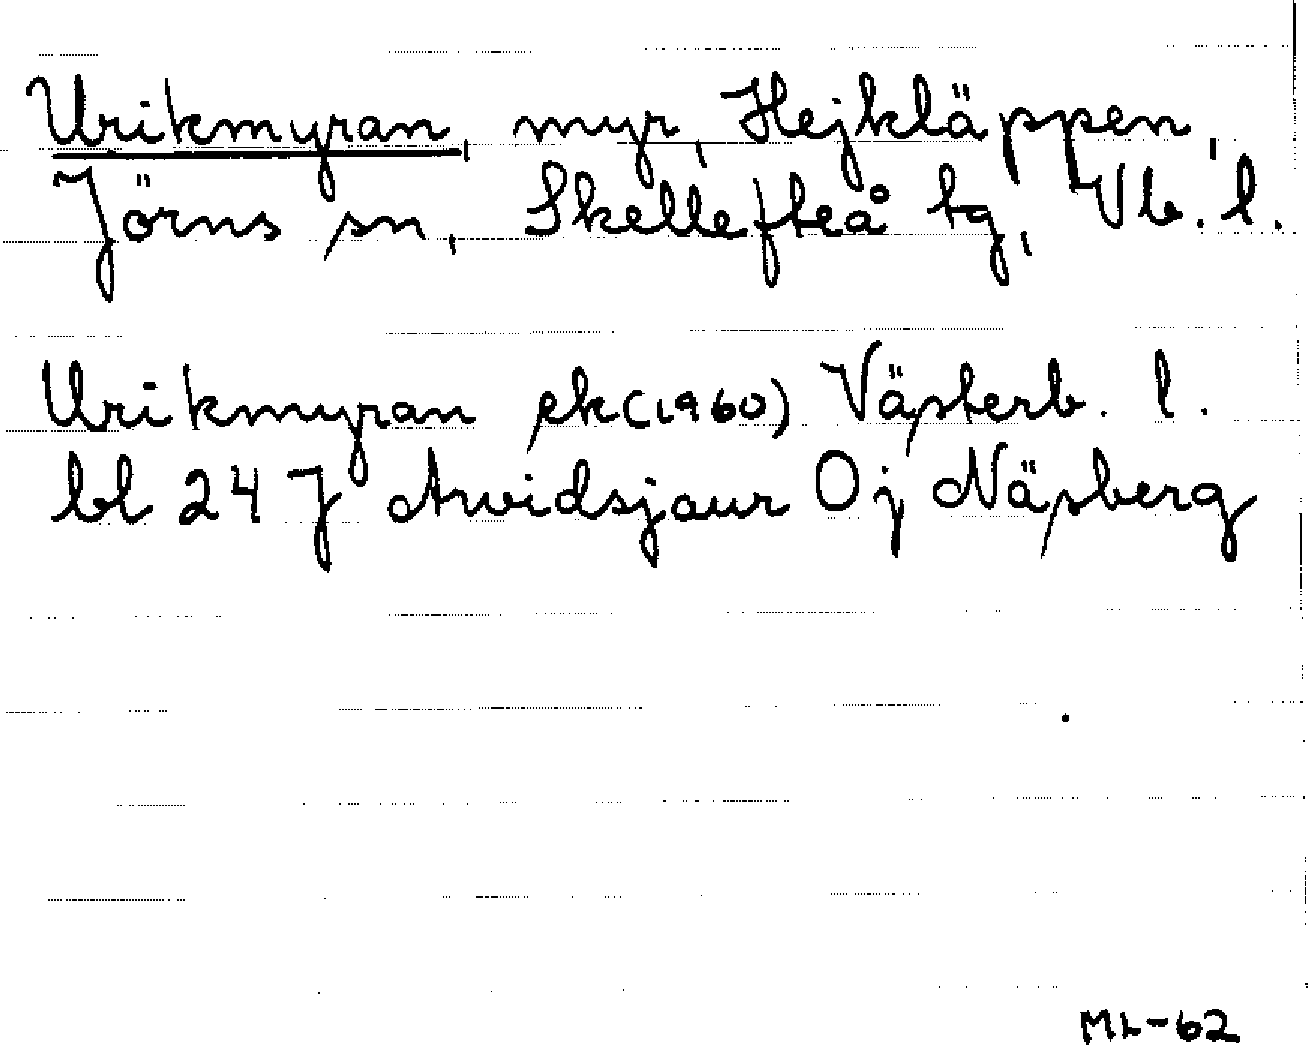 Urikmyran, myr, Hejkläppen,
Jörns sn, Skellefteå tg, Vb. l.
Urikmyran ek (1960) Västerb. l.
bl 24 J Arvidsjaur Oj Näsberg
ML-62